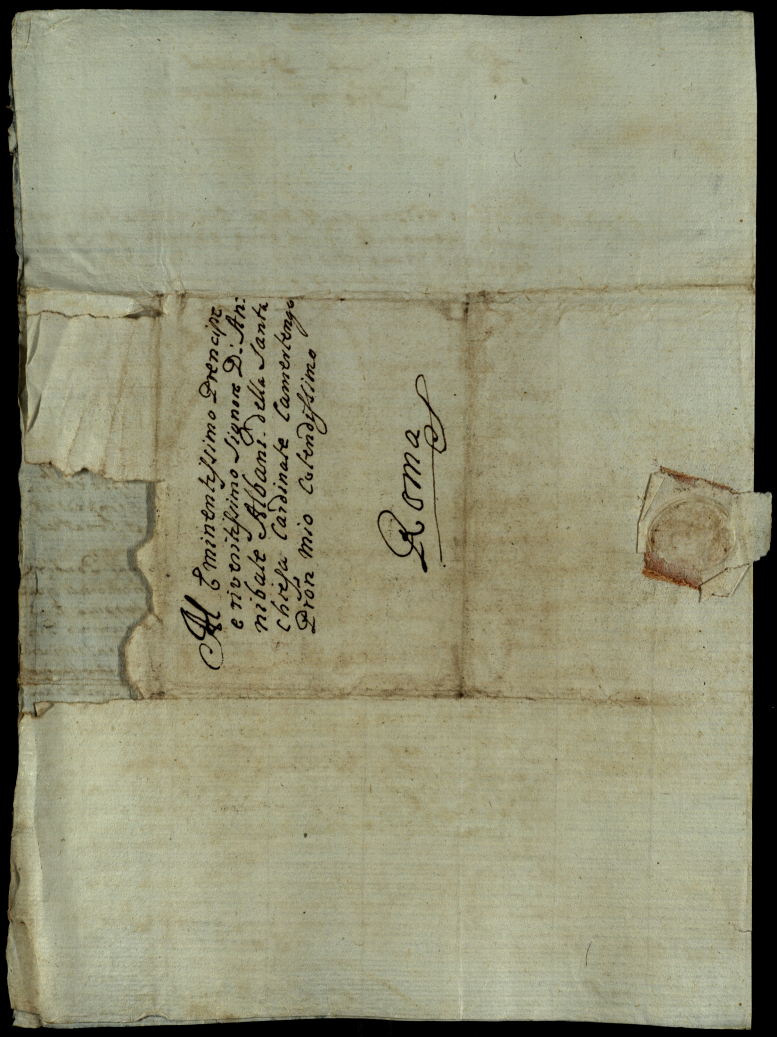 Al Eminentissimo Prencipe
e riveritissimo Signore D: An:
nibale Albani della Santa
Chiesa Cardinale Camerlengo
Pron mio Colendissimo
Roma